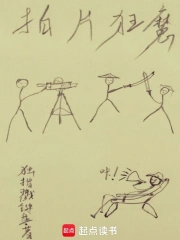 拍片狂魔
咔！
独指戳
著
起点 起点读书